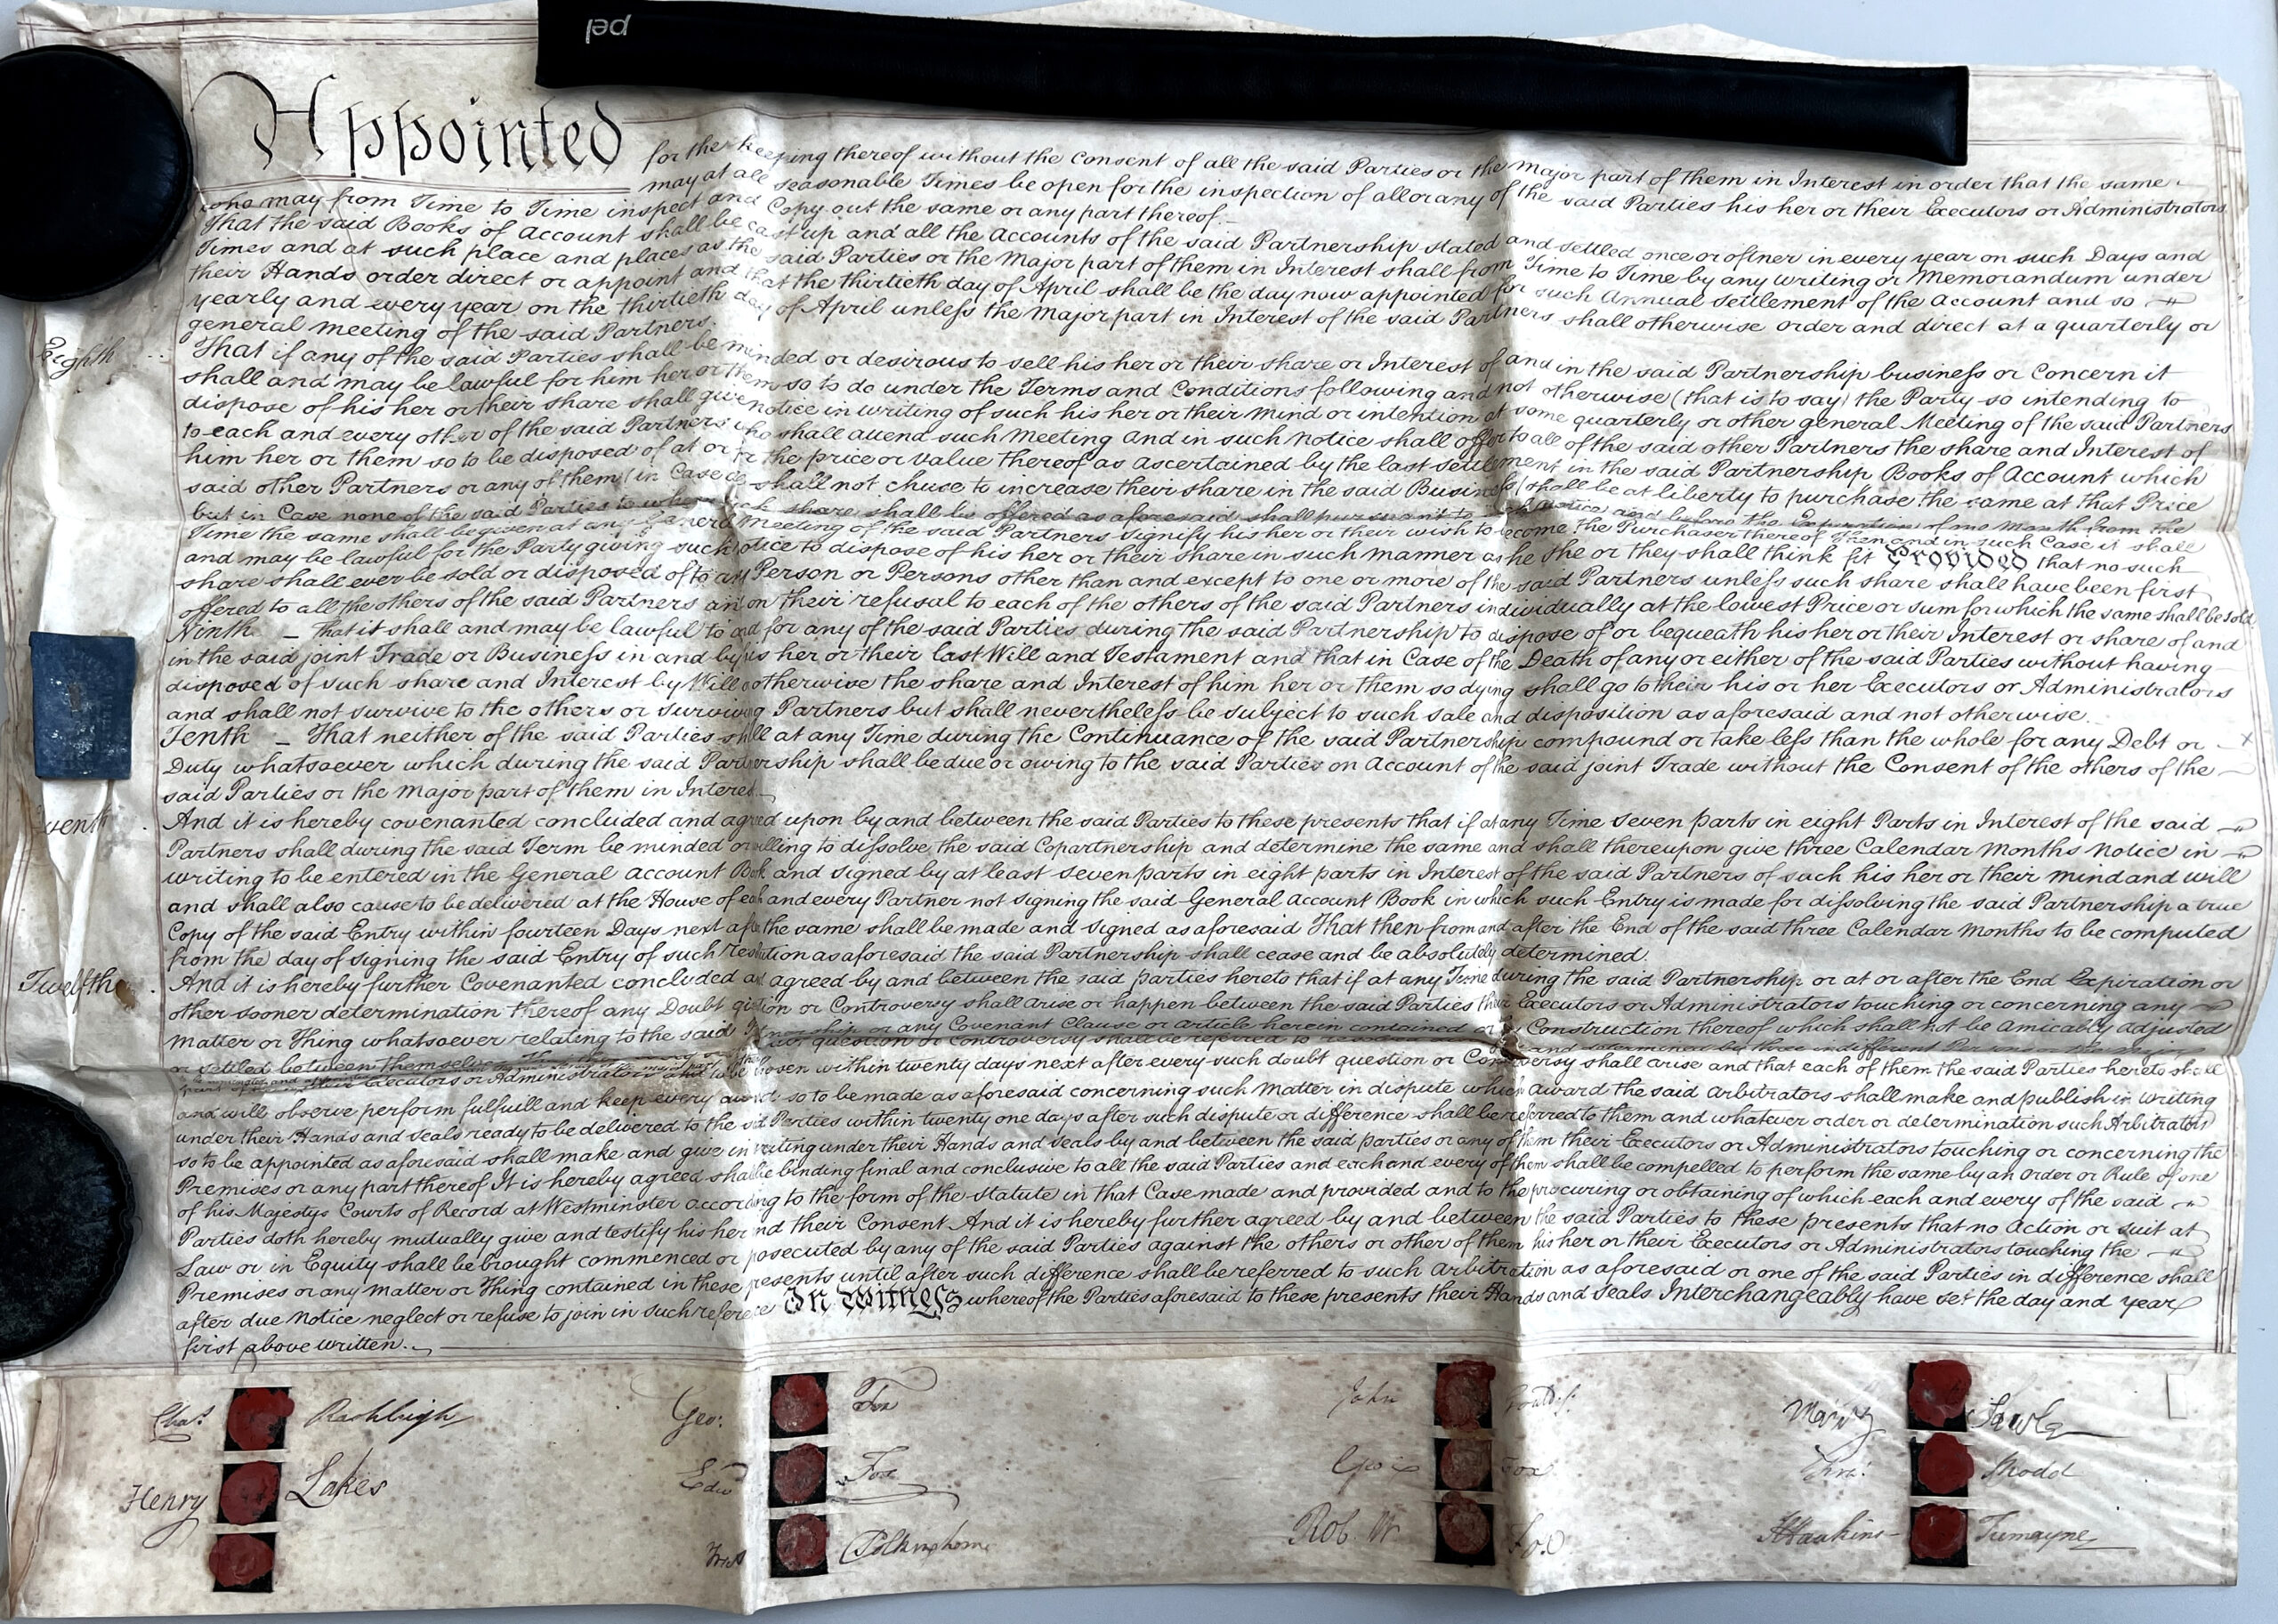 pel
Appointed for the keeping thereof without the Consent of all the said Parties or the Major part of them in Interest in order that the same
may at all seasonable Times be open for the inspection of all or any of the said Parties his her or their Executors or Administrators
who may from Time to Time inspect and Copy out the same or any part thereof.
That the said Books of Account shall be cast up and all the Accounts of the said Partnership stated and settled once or oftner in every year on such Days and
Times and at such place and places as the said Parties or the Major part of them in Interest shall from Time to Time by any writing or Memorandum under
their Hands order direct or appoint and that the thirtieth day of April shall be the day now appointed for such Annual Settlement of the Account and so
yearly and every year on the thirtieth day of April unless the Major part in Interest of the said Partners shall otherwise order and direct at a quarterly or
general meeting of the said Partners.
Eighth
That if any of the said Parties shall be minded or desirous to sell his her or their share or Interest of and in the said Partnership business or Concern it
shall and may be lawful for him her or them so to do under the Terms and Conditions following and not otherwise (that is to say) the Party so intending to
dispose of his her or their share shall give notice in writing of such his her or their Mind or intention at some quarterly or other general Meeting of the said Partners
to each and every other of the said Partners who shall attend such Meeting and in such Notice shall offer to all of the said other Partners the share and Interest of
him her or them so to be disposed of at or for the price or value thereof as ascertained by the last settlement in the said Partnership Books of Account which
said other Partners or any of them (in Case shall not chuse to increase their share in the said Business) shall be at liberty to purchase the same at that Price
but in Case none of the said Parties to whom such share shall be offered as aforesaid shall pursuant to such Notice and before the Expiration of one Month from the
Time the same shall be given at any General Meeting of the said Partners signify his her or their wish to become the Purchaser thereof Then and in such Case it shall
and may be lawful for the Party giving such notice to dispose of his her or their share in such manner as he she or they shall think fit Provided that no such
share shall ever be sold or disposed of to any Person or Persons other than and except to one or more of the said Partners unless such share shall have been first
offered to all the others of the said Partners and on their refusal to each of the others of the said Partners individually at the lowest Price or sum for which the same shall be sold
Ninth – That it shall and may be lawful to and for any of the said Parties during the said Partnership to dispose of or bequeath his her or their Interest or share of and
in the said joint Trade or Business in and by his her or their last Will and Testament and that in Case of the Death of any or either of the said Parties without having
disposed of such share and Interest by Will or otherwise the share and Interest of him her or them so dying shall go to their his or her Executors or Administrators
and shall not survive to the others or surviving Partners but shall nevertheless be subject to such sale and disposition as aforesaid and not otherwise.
Tenth – That neither of the said Parties shall at any Time during the Continuance of the said Partnership compound or take less than the whole for any Debt or
Duty whatsoever which during the said Partnership shall be due or owing to the said Parties on Account of the said joint Trade without the Consent of the others of the
said Parties or the Major part of them in Interest.
And it is hereby covenanted concluded and agreed upon by and between the said Parties to these presents that if at any Time Seven Parts in eight Parts in Interest of the said
Partners shall during the said Term be minded or willing to dissolve the said Copartnership and determine the same and shall thereupon give three Calendar Months Notice in
writing to be entered in the General Account Book and signed by at least seven parts in eight parts in Interest of the said Partners of such his her or their mind and will
and shall also cause to be delivered at the House of each and every Partner not signing the said General Account Book in which such Entry is made for dissolving the said Partnership a true
Copy of the said Entry within fourteen Days next after the same shall be made and signed as aforesaid That then from and after the End of the said three Calendar Months to be computed
from the day of signing the said Entry of such resolution as aforesaid the said Partnership shall cease and be absolutely determined.
Twelfth
And it is hereby further Covenanted concluded and agreed by and between the said parties hereto that if at any Time during the said Partnership or at or after the End Expiration or
other sooner determination thereof any Doubt question or Controversy shall arise or happen between the said Parties their Executors or Administrators touching or concerning any
Matter or Thing whatsoever relating to the said Partnership or any Covenant Clause or article herein contained or Construction thereof which shall not be amicably adjusted
or settled between themselves question or Controversy shall be referred to and determined by three indifferent Persons
Executors or Administrators and to be chosen within twenty days next after every such doubt question or Controversy shall arise and that each of them the said Parties hereto shall
and will observe perform fulfill and keep every award so to be made as aforesaid concerning such Matter in dispute which award the said Arbitrators shall make and publish in writing
under their Hands and seals ready to be delivered to the said Parties within twenty one days after such dispute or difference shall be referred to them and whatever order or determination such Arbitrators
so to be appointed as aforesaid shall make and give in writing under their Hands and seals by and between the said parties or any of them their Executors or Administrators touching or concerning the
Premises or any part thereof It is hereby agreed shall be binding final and conclusive to all the said Parties and each and every of them shall be compelled to perform the same by an order or Rule of one
of his Majestys Courts of Record at Westminster according to the form of the statute in that Case made and provided and to the procuring or obtaining of which each and every of the said
Parties doth hereby mutually give and testify his her and their Consent And it is hereby further agreed by and between the said Parties to these presents that no Action or suit at
Law or in Equity shall be brought commenced or prosecuted by any of the said Parties against the others or other of them his her or their Executors or Administrators touching the
Premises or any Matter or Thing contained in these presents until after such difference shall be referred to such Arbitration as aforesaid or one of the said Parties in difference shall
after due Notice neglect or refuse to join in such reference In Witness whereof the Parties aforesaid to these presents their Hands and seals Interchangeably have set the day and year
first above written.
Chas. Rashleigh Geo: Fox John Mary Sawle
Henry Lakes Edw Fox Geo Fox Shodd
Polkinghorne Rob. W. Fox Hawkins Tremayne